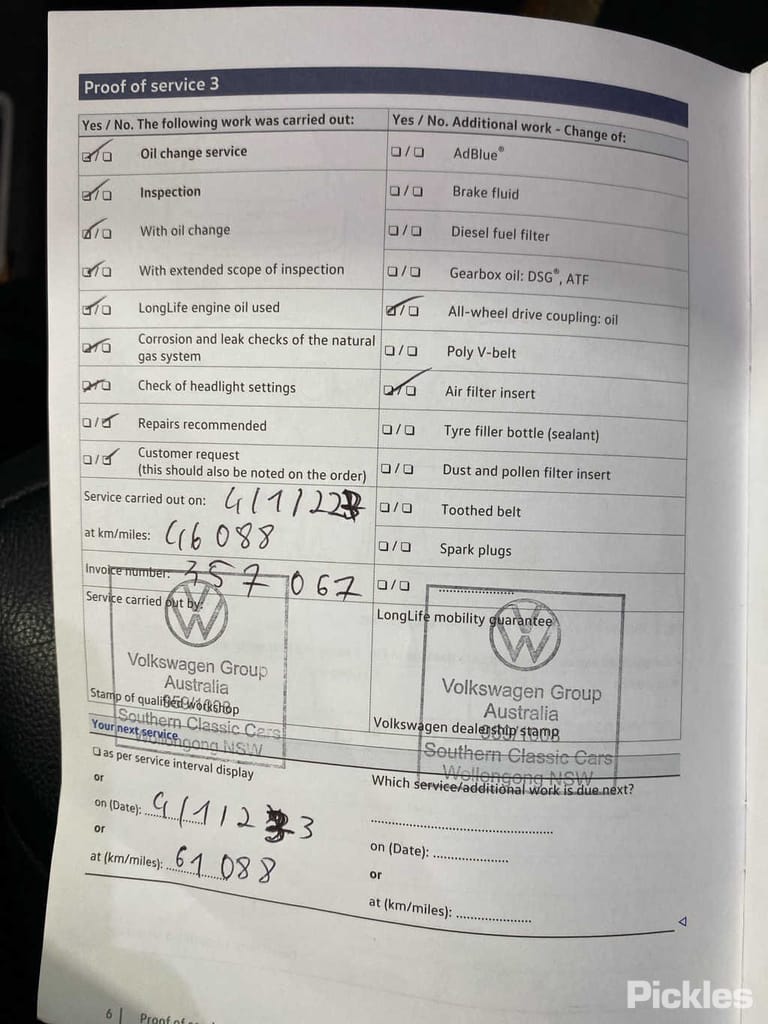 Proof of service 3
Yes / No. The following work was carried out:
☑/☐ Oil change service
☑/☐ Inspection
☑/☐ With oil change
☑/☐ With extended scope of inspection
☑/☐ LongLife engine oil used
☑/☐ Corrosion and leak checks of the natural
gas system
☑/☐ Check of headlight settings
☐/☑ Repairs recommended
☐/☑ Customer request
(this should also be noted on the order)
Service carried out on: 4/1/22
at km/miles: 46 088
Invoice number: 357 067
Service carried out by:
Volkswagen Group
Australia
Stamp of qualified workshop
Southern Classic Cars
Wollongong NSW
Yes / No. Additional work - Change of:
☐/☐ AdBlue®
☐/☐ Brake fluid
☐/☐ Diesel fuel filter
☐/☐ Gearbox oil: DSG®, ATF
☑/☐ All-wheel drive coupling: oil
☐/☐ Poly V-belt
☑/☐ Air filter insert
☐/☐ Tyre filler bottle (sealant)
☐/☐ Dust and pollen filter insert
☐/☐ Toothed belt
☐/☐ Spark plugs
☐/☐ ....................
LongLife mobility guarantee
Volkswagen Group
Australia
Volkswagen dealership stamp
Southern Classic Cars
Wollongong NSW
Your next service
☐ as per service interval display
or
on (Date): 4/1/23
or
at (km/miles): 61 088
Which service/additional work is due next?
..................................................
on (Date): ....................
or
at (km/miles): ....................
6 | Proof of
Pickles